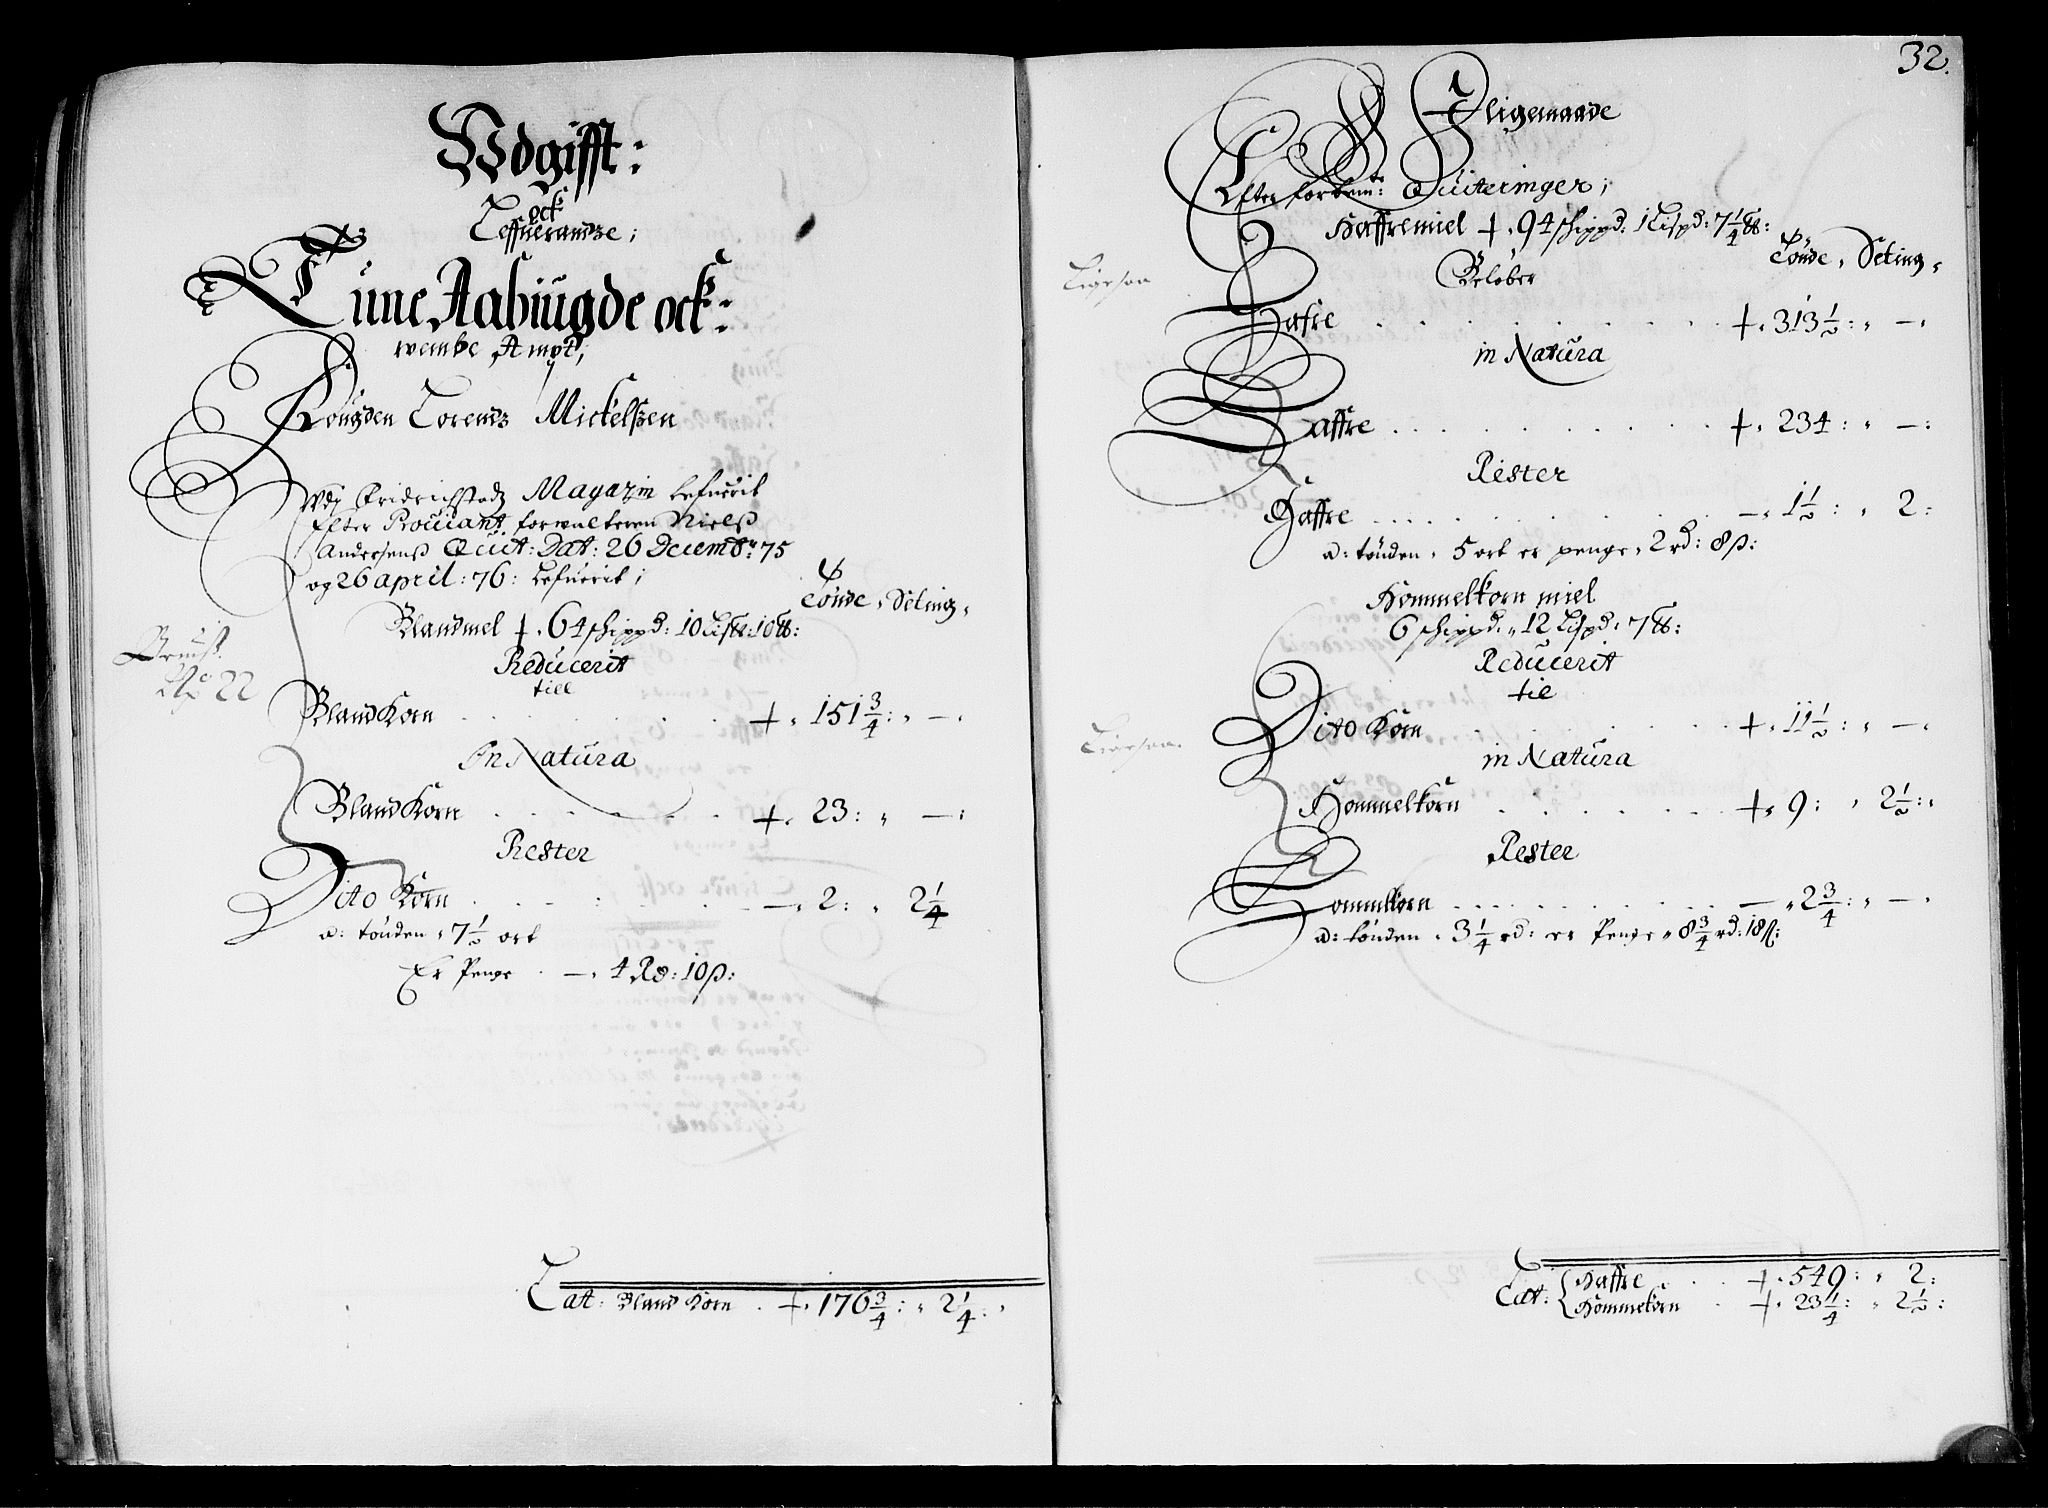 Wdgifft:
ock
Leffuerandze;
Tune, Aabÿugde ock:
wembe Ampt;
Fougden Lorends Mickelßen
Wdj Fridrichstadz Magazin Lefuerit
Efter Prouiant forwalteren Nielß
Anderßenß Quit: Dat: 26 Decembr 75
og 26 april: 76: Lefuerit;
Tønde, Seting,
Blandmel + 64 schippd: 10 Lispd: 10 ℔:
No 22
Reducerit
till
Bland Korn + 151 3/4: „ —
In Natura
Bland Korn + 23: „ —:
Rester
Dito Korn — 2: „ 2 1/4
a: tønden 7 1/2 ort
Er Penge — 4 Rd: 10 ß:
Lat: Bland Korn + 176 3/4: „ 2 1/4:
32.
I ligemaade
Efter forbemte: Quiteringer;
Haffremiel + 94 schippd: 1 Lispd: 7 1/4 ℔:
Tønde, Seting,
Beløber
Hafre + 313 1/2: „ —:
in Natura
Haffre + 234: „ —:
Rester
Haffre — 1 1/2: „ 2:
a: tønden 5 ort er penge 2 rd: 8 ß:
Hommelkorn miel
6 schippd: 12 Lispd: 7 ℔:
Reducerit
til
Dito Korn + 11 1/2: „ —
in Natura
Hommelkorn + 9: „ 2 1/2:
Rester
Hommelkorn — 2 3/4: „ —
a: tønden 3 1/4 rd: er Penge 8 3/4 rd: 18 ß:
Lat: Haffre + 549: „ 2:
Hommelkorn + 23 1/4: „ 2 1/2: